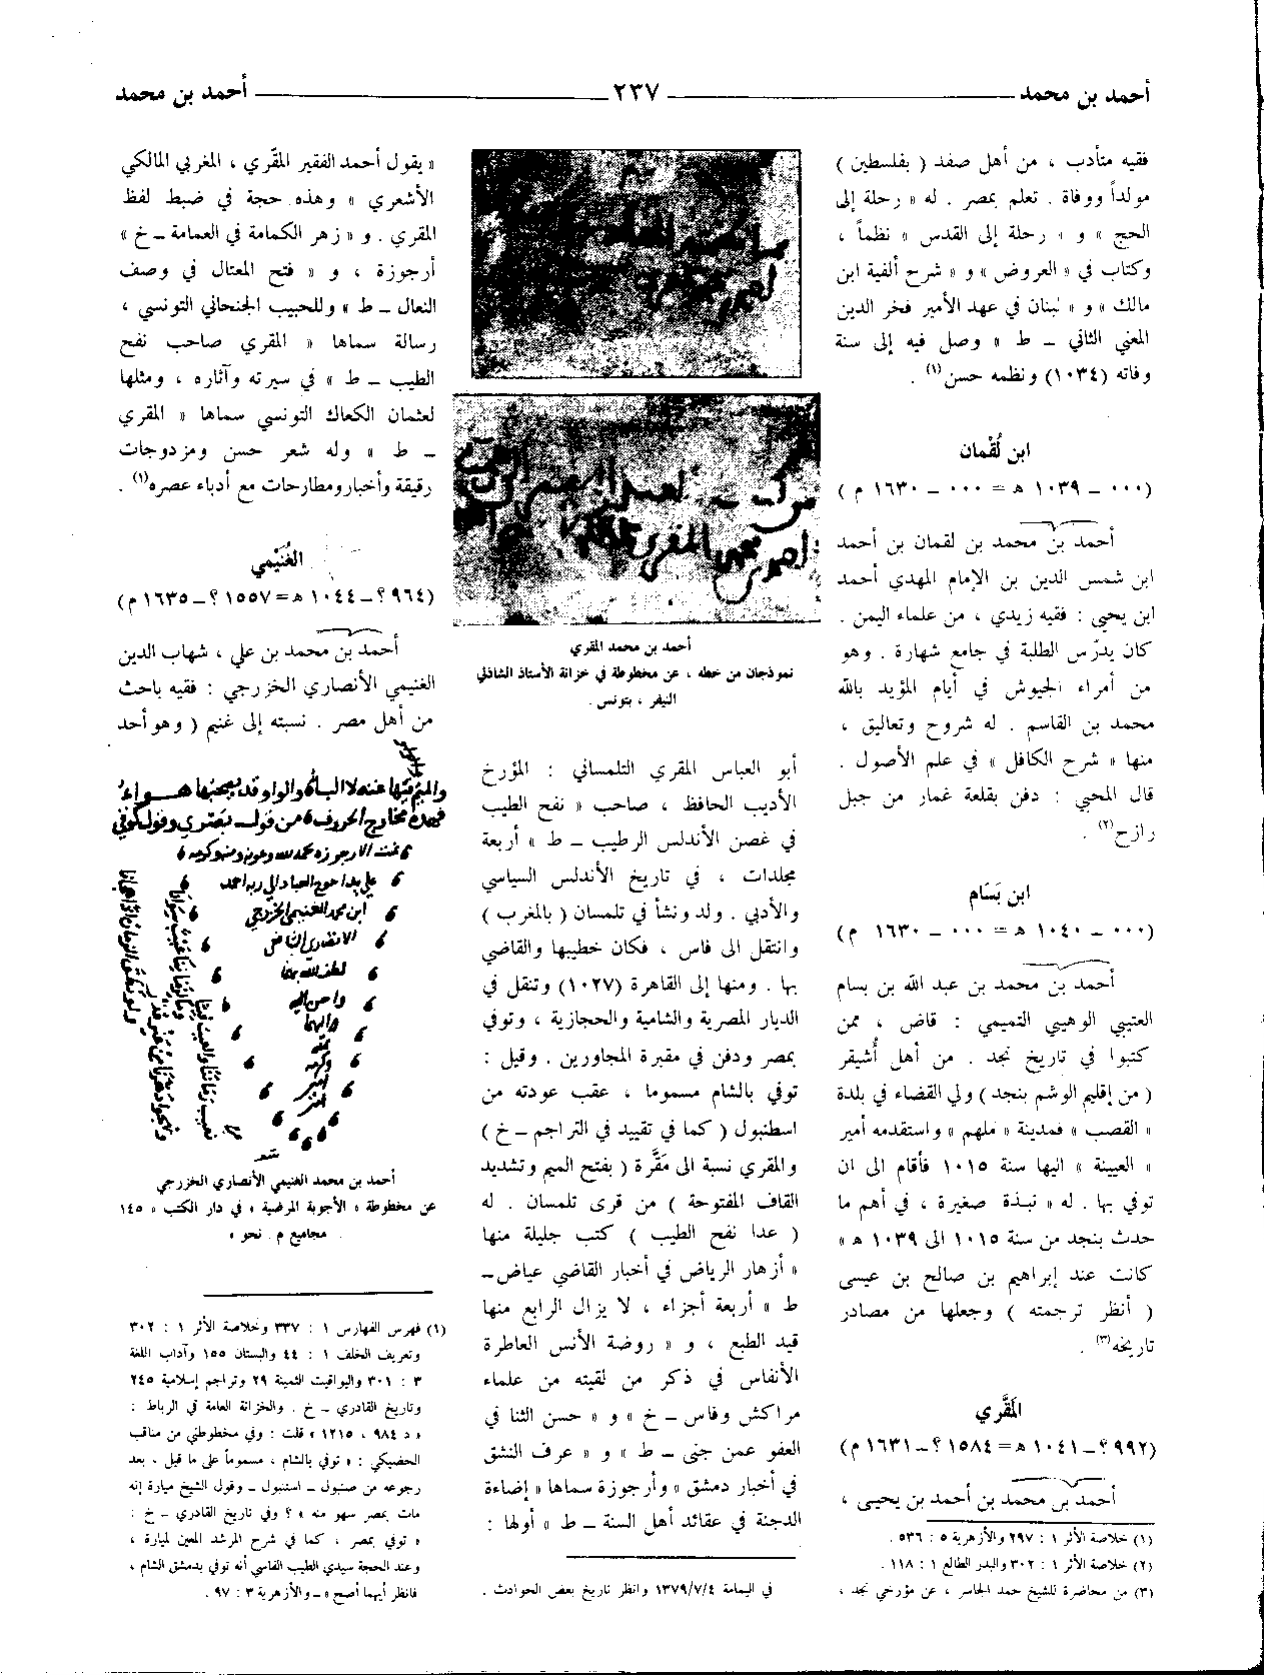 أحمد بن محمد ــــــ ٢٣٧ ــــــ أحمد بن محمد
فقيه متأدب ، من أهل صفد ( بفلسطين )
مولداً ووفاة . تعلم بمصر . له « رحلة إلى
الحج » و « رحلة إلى القدس » نظماً ،
وكتاب في « العروض » و « شرح ألفية ابن
مالك » و « لبنان في عهد الأمير فخر الدين
المعني الثاني ـ ط » وصل فيه إلى سنة
وفاته (١٠٣٤) ونظمه حسن(١) .
ابن لُقْمان
(٠٠٠ ـ ١٠٣٩ هـ = ٠٠٠ ـ ١٦٣٠ م )
أحمد بن محمد بن لقمان بن أحمد
ابن شمس الدين بن الإمام المهدي أحمد
ابن يحيى : فقيه زيدي ، من علماء اليمن .
كان يدرّس الطلبة في جامع شهارة . وهو
من أمراء الجيوش في أيام المؤيد بالله
محمد بن القاسم . له شروح وتعاليق ،
منها « شرح الكافل » في علم الأصول .
قال المحبي : دفن بقلعة غمار من جبل
رازح(٢) .
ابن بَسَام
(٠٠٠ ـ ١٠٤٠ هـ = ٠٠٠ ـ ١٦٣٠ م)
أحمد بن محمد بن عبد الله بن بسام
العتيبي الوهيبي التميمي : قاض ، ممن
كتبوا في تاريخ نجد . من أهل أُشيقر
( من إقليم الوشم بنجد ) ولي القضاء في بلدة
« القصب » فمدينة « ملهم » واستقدمه أمير
« العيينة » اليها سنة ١٠١٥ فأقام الى ان
توفي بها . له « نبذة صغيرة ، في أهم ما
حدث بنجد من سنة ١٠١٥ الى ١٠٣٩ هـ »
كانت عند إبراهيم بن صالح بن عيسى
( أنظر ترجمته ) وجعلها من مصادر
تاريخه(٣) .
المَقَّري
(٩٩٢ ؟ ـ ١٠٤١ هـ = ١٥٨٤ ؟ ـ ١٦٣١ م)
أحمد بن محمد بن أحمد بن يحيى ،
(١) خلاصة الأثر ١ : ٢٩٧ والأزهرية ٥ : ٥٣٦ .
(٢) خلاصة الأثر ١ : ٣٠٢ والبدر الطالع ١ : ١١٨ .
(٣) من محاضرة للشيخ حمد الجاسر ، عن مؤرخي نجد ،
أحمد بن محمد المقري
نموذجان من خطه ، عن مخطوطة في خزانة الأستاذ الشاذلي
النيفر ، بتونس .
أبو العباس المقري التلمساني : المؤرخ
الأديب الحافظ ، صاحب « نفح الطيب
في غصن الأندلس الرطيب ـ ط » أربعة
مجلدات ، في تاريخ الأندلس السياسي
والأدبي . ولد ونشأ في تلمسان ( بالمغرب )
وانتقل الى فاس ، فكان خطيبها والقاضي
بها . ومنها إلى القاهرة (١٠٢٧) وتنقل في
الديار المصرية والشامية والحجازية ، وتوفي
بمصر ودفن في مقبرة المجاورين . وقيل :
توفي بالشام مسموما ، عقب عودته من
اسطنبول ( كما في تقييد في التراجم ـ خ )
والمقري نسبة الى مَقَّرة ( بفتح الميم وتشديد
القاف المفتوحة ) من قرى تلمسان . له
( عدا نفح الطيب ) كتب جليلة منها
« أزهار الرياض في أخبار القاضي عياض ـ
ط » أربعة أجزاء ، لا يزال الرابع منها
قيد الطبع ، و « روضة الأنس العاطرة
الأنفاس في ذكر من لقيته من علماء
مراكش وفاس ـ خ » و « حسن الثنا في
العفو عمن جنى ـ ط » و « عرف النشق
في أخبار دمشق » وأرجوزة سماها « إضاءة
الدجنة في عقائد أهل السنة ـ ط » أولها :
في اليمامة ١٣٧٩/٧/٤ وانظر تاريخ بعض الحوادث .
« يقول أحمد الفقير المقّري ، المغربي المالكي
الأشعري » وهذه حجة في ضبط لفظ
المقري . و « زهر الكمامة في العمامة ـ خ »
أرجوزة ، و « فتح المتعال في وصف
النعال ـ ط » وللحبيب الجنحاني التونسي ،
رسالة سماها « المقري صاحب نفح
الطيب ـ ط » في سيرته وآثاره ، ومثلها
لعثمان الكعاك التونسي سماها « المقري
ـ ط » وله شعر حسن ومزدوجات
رقيقة وأخبار ومطارحات مع أدباء عصره(١) .
الغُنَيْمي
(٩٦٤ ؟ ـ ١٠٤٤ هـ = ١٥٥٧ ؟ ـ ١٦٣٥ م)
أحمد بن محمد بن علي ، شهاب الدين
الغنيمي الأنصاري الخزرجي : فقيه باحث
من أهل مصر . نسبته إلى غنيم ( وهو أحد
فهذه مخارج الحروف من قول بصري وقول كوفي
تمت الارجوزة بحمد الله وعونه ومنه وكرمه
ابن محمد الغنيمي الخزرجي
لطف الله بهما
أحمد بن محمد الغنيمي الأنصاري الخزرجي
عن مخطوطة « الأجوبة المرضية » في دار الكتب « ١٤٥
مجاميع م . نحو »
(١) فهرس الفهارس ١ : ٣٣٧ وخلاصة الأثر ١ : ٣٠٢
وتعريف الخلف ١ : ٤٤ والبستان ١٥٥ وآداب اللغة
٣ : ٣٠١ واليواقيت الثمينة ٢٩ وتراجم إسلامية ٢٤٥
وتاريخ القادري ـ خ . والخزانة العامة في الرباط :
« د ٩٨٤ ، ١٢١٥ » قلت : وفي مخطوطتي من مناقب
الحضيكي : « توفي بالشام ، مسموماً على ما قيل ، بعد
رجوعه من صنبول ـ استنبول ـ وقول الشيخ ميارة إنه
مات بمصر سهو منه » ؟ وفي تاريخ القادري ـ خ :
« توفي بمصر ، كما في شرح المرشد المعين لميارة ،
وعند الحجة سيدي الطيب الفاسي أنه توفي بدمشق الشام ،
فانظر أيهما أصح » ـ والأزهرية ٣ : ٩٧ .